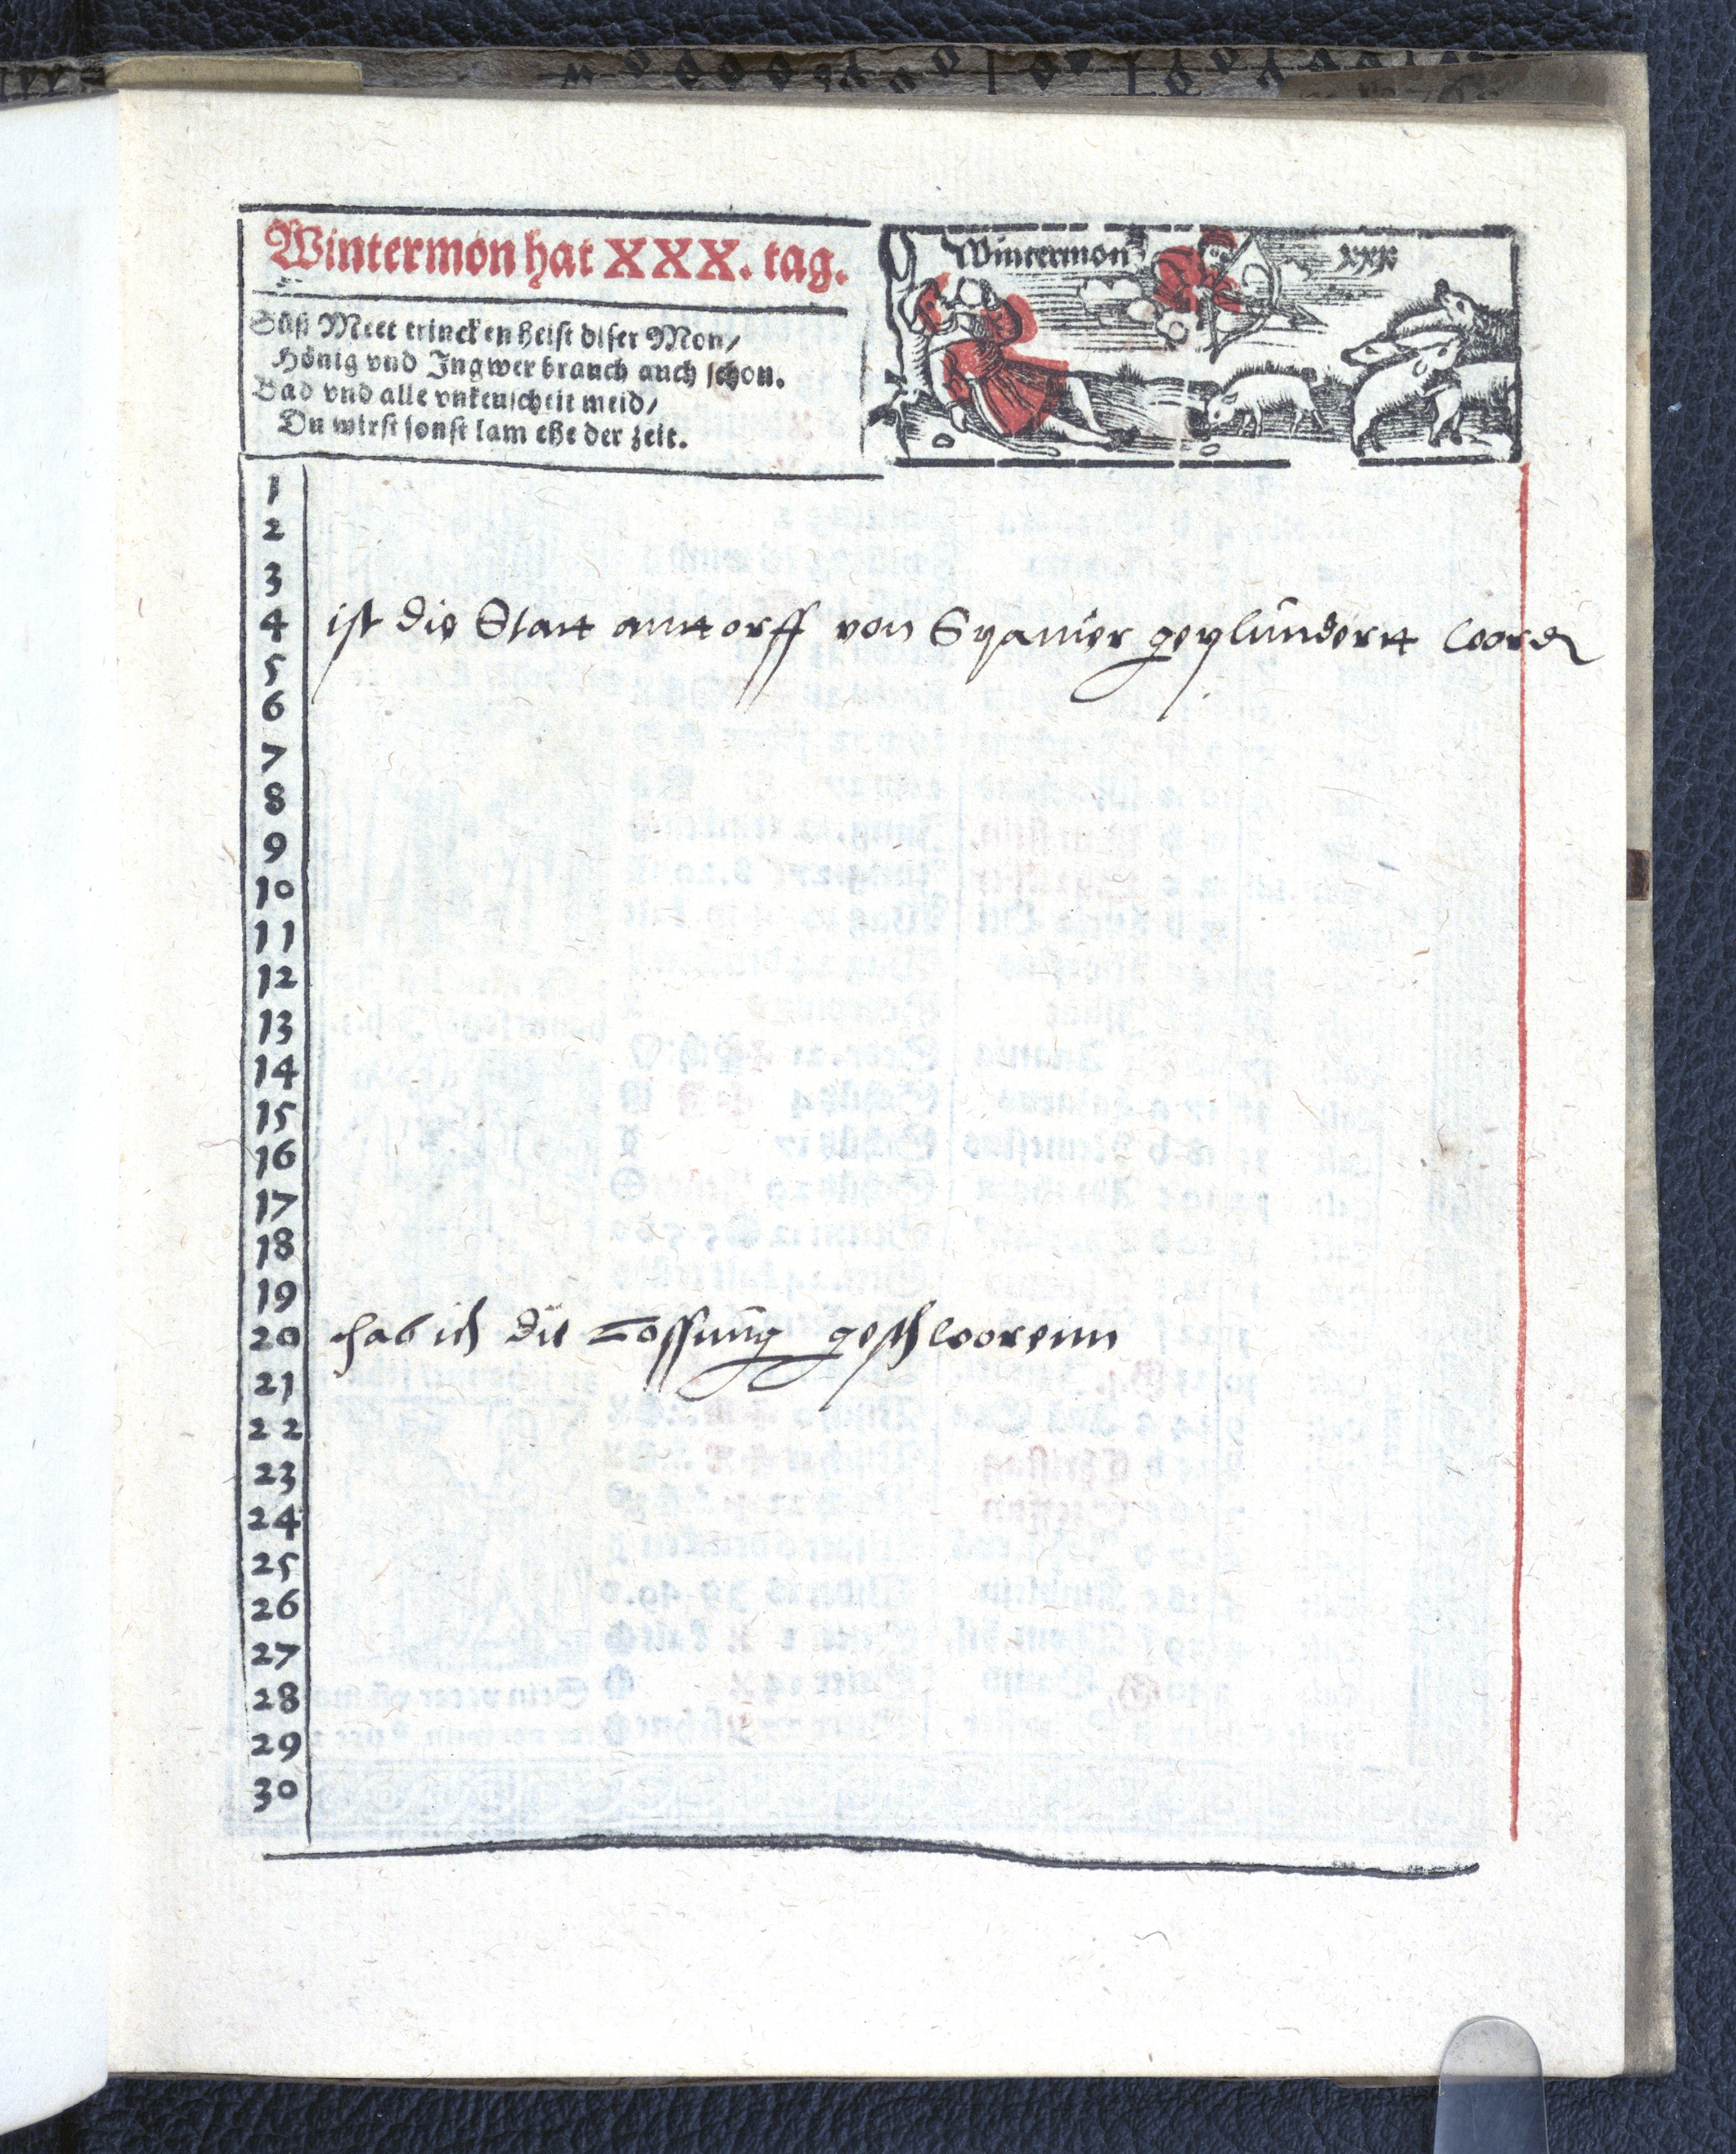 Wintermon hat XXX. tag.
Süß Meet trincken heist diser Mon/
Hönig vnd Ingwer brauch auch schon.
Bad vnd alle vnkeuscheit meid/
Du wirst sonst lam ehe der zeit.
Wintermon xxx
1
2
3
4 ist die Statt anttorff von Spanier geplündertt word
5
6
7
8
9
10
11
12
13
14
15
16
17
18
19
20 hab ich die Lossung geschworenn
21
22
23
24
25
26
27
28
29
30